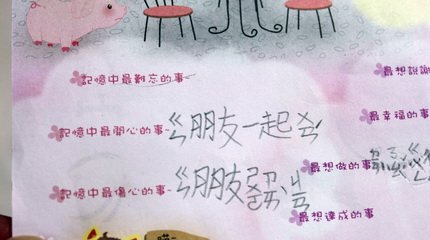 記憶中最難忘的事
記憶中最開心的事 朋友一起
記憶中最傷心的事 朋友
最想說謝
最幸福的事
最想做的事
最想達成的事